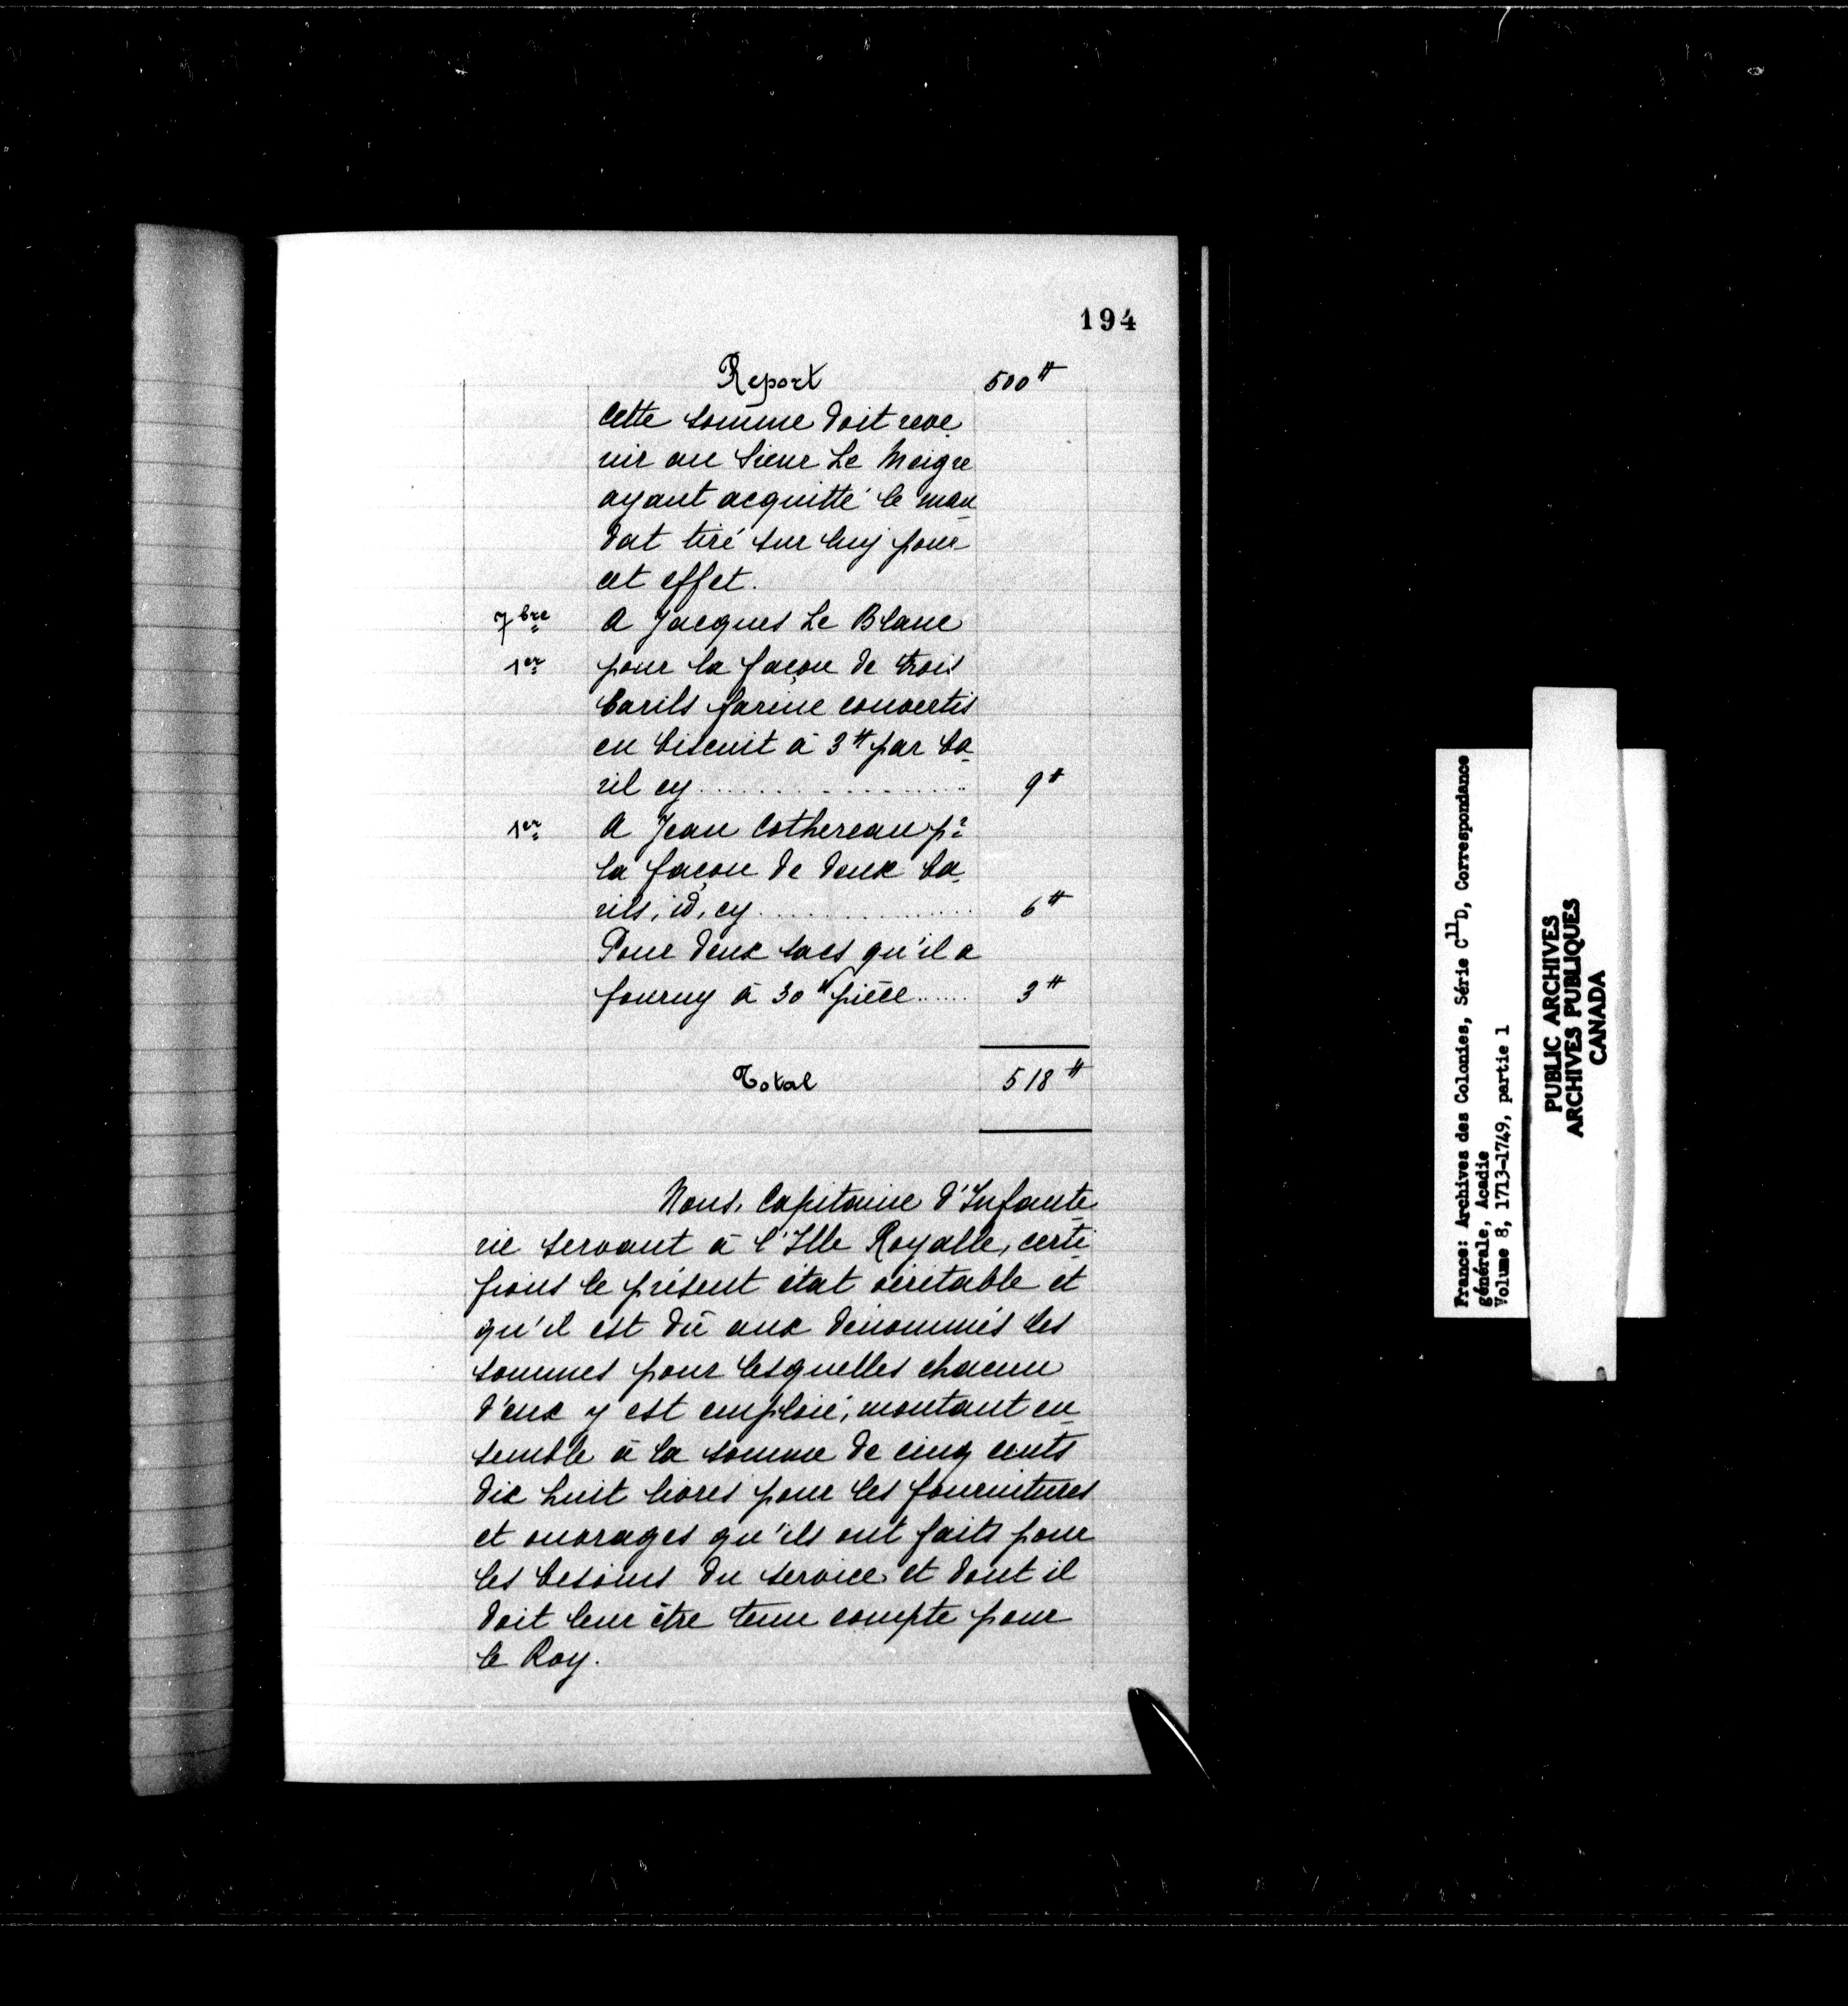 194
Report 500ᵗᵗ
Cette somme doit reve
nir au Sieur Le Maigre
ayant acquitté le man
dat tiré sur luy pour
cet effet.
7bre A Jacques Le Blanc
1er pour la façon de trois
barils farine convertis
en biscuit à 3ᵗᵗ par ba
ril cy.................. 9ᵗᵗ
1er A Jean Cothereau pr
la façon de deux ba
rils, id, cy.................. 6ᵗᵗ
Pour deux sacs qu'il a
fourny à 30s pièce...... 3ᵗᵗ
Total 518ᵗᵗ
Nous, Capitaine d'Infante
rie servant à l'Isle Royalle, certi
fions le présent état véritable et
qu'il est dû aux dénommés les
sommes pour lesquelles chacun
d'eux y est emploié, montant en
semble à la somme de cinq cents
dix huit livres pour les fournitures
et ouvrages qu'ils ont faits pour
les besoins du service et dont il
doit leur être tenu compte pour
le Roy.
France: Archives des Colonies, Série C11D, Correspondance
générale, Acadie
Volume 8, 1713-1749, partie 1
PUBLIC ARCHIVES
ARCHIVES PUBLIQUES
CANADA